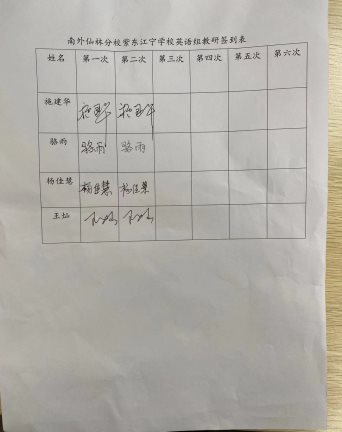 南外仙林分校紫东江宁学校英语组教研签到表
姓名 第一次 第二次 第三次 第四次 第五次 第六次
施建华 施建华 施建华
骆雨 骆雨 骆雨
杨佳慧 杨佳慧 杨佳慧
王灿 王灿 王灿